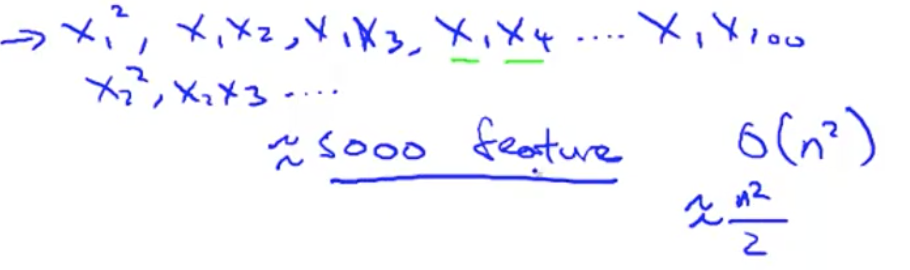 → x₁², x₁x₂, x₁x₃, x₁x₄ .... x₁x₁₀₀
x₂², x₂x₃ ....
≈ 5000 feature O(n²)
≈ n²/2